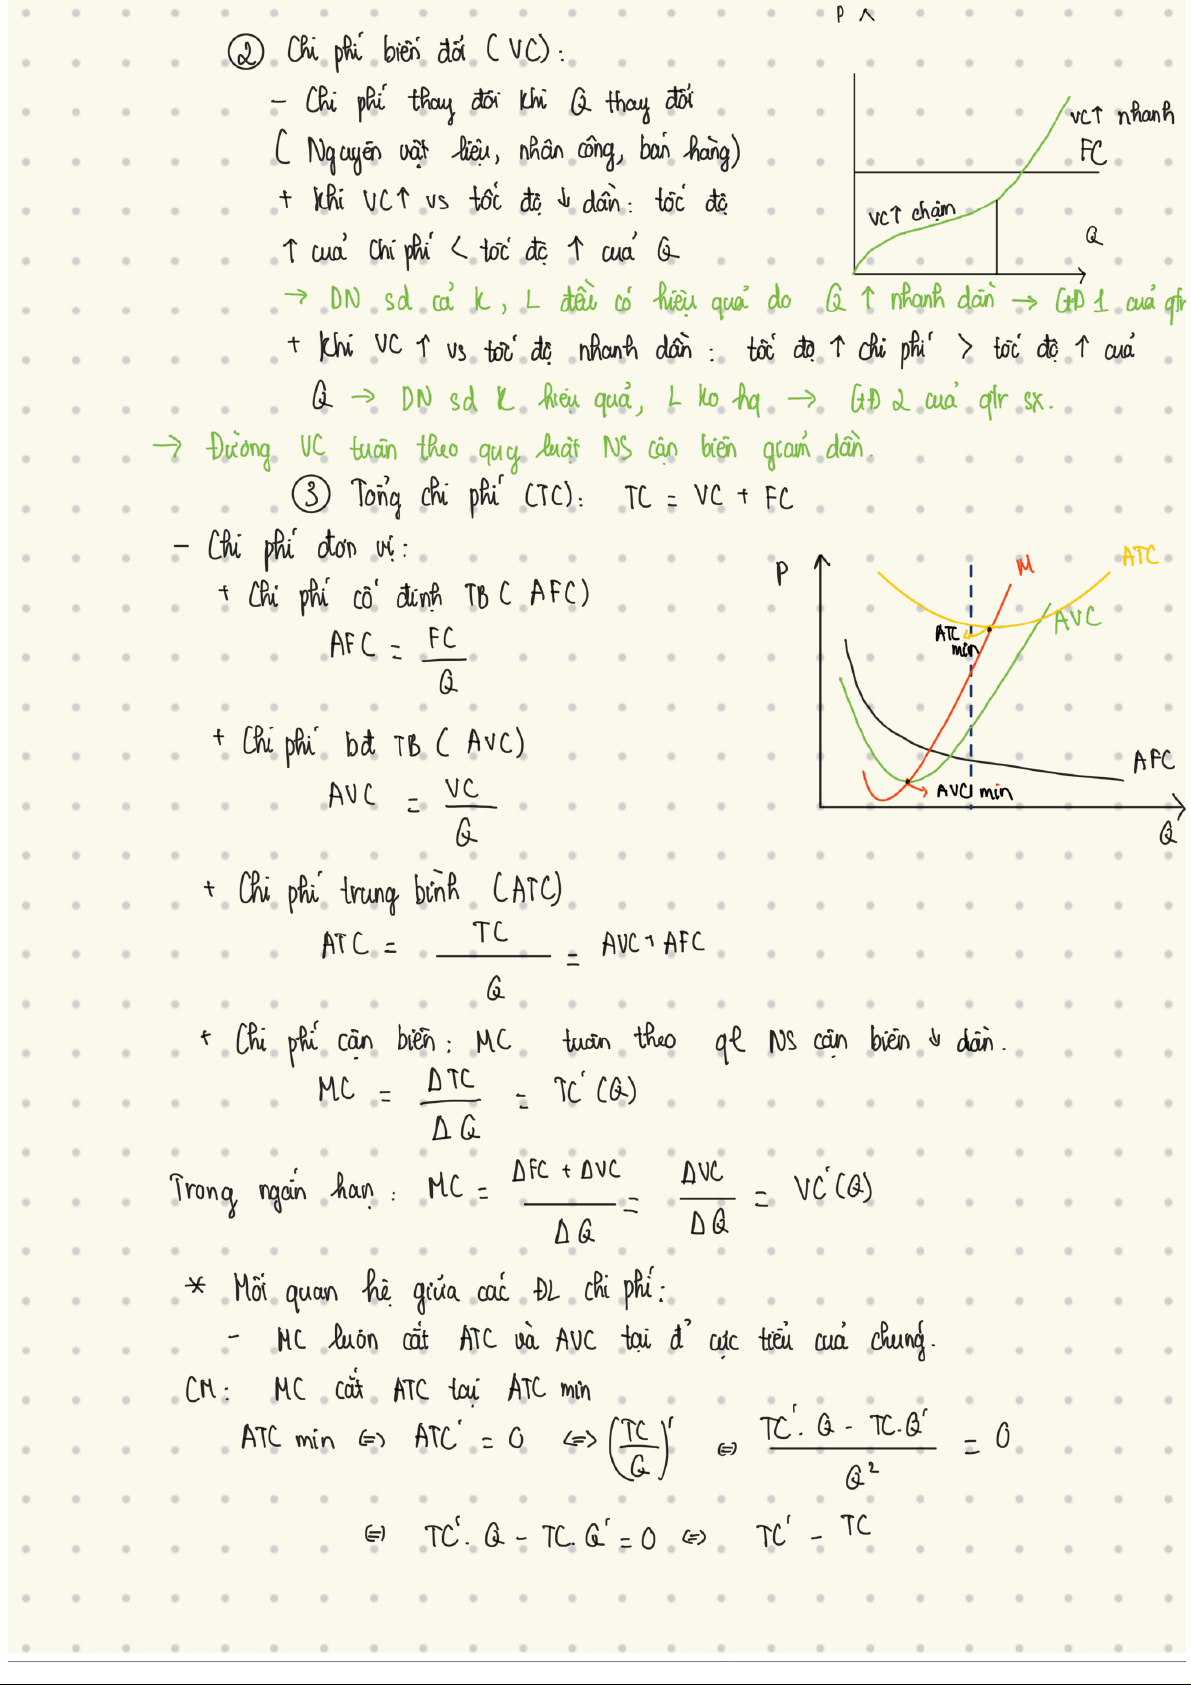 P
② Chi phí biến đổi (VC):
- Chi phí thay đổi khi Q thay đổi
( Nguyên vật liệu, nhân công, bán hàng)
+ Khi VC↑ vs tốc độ ↓ dần: tốc độ
↑ của chi phí < tốc độ ↑ của Q
VC↑ nhanh
FC
VC↑ chậm
Q
→ DN sd cả K, L đều có hiệu quả do Q ↑ nhanh dần → GĐ 1 của qtr
+ Khi VC ↑ vs tốc độ nhanh dần: tốc độ ↑ chi phí > tốc độ ↑ của
Q → DN sd K hiệu quả, L ko hq → GĐ 2 của qtr sx.
→ Đường VC tuân theo quy luật NS cận biên giảm dần.
③ Tổng chi phí (TC): TC = VC + FC
- Chi phí đơn vị:
+ Chi phí cố định TB ( AFC)
AFC = FC / Q
+ Chi phí bđ TB ( AVC)
AVC = VC / Q
P
M
ATC
AVC
ATC min
AFC
AVC min
Q
+ Chi phí trung bình (ATC)
ATC = TC / Q = AVC + AFC
+ Chi phí cận biên: MC tuân theo ql NS cận biên ↓ dần.
MC = ΔTC / ΔQ = TC'(Q)
Trong ngắn hạn: MC = ΔFC + ΔVC / ΔQ = ΔVC / ΔQ = VC'(Q)
* Mối quan hệ giữa các ĐL chi phí:
- MC luôn cắt ATC và AVC tại đ' cực tiểu của chúng.
CM: MC cắt ATC tại ATC min
ATC min ⇔ ATC' = 0 ⇔ (TC / Q)' ⇔ TC'. Q - TC.Q' / Q² = 0
⇔ TC'. Q - TC. Q' = 0 ⇔ TC' - TC